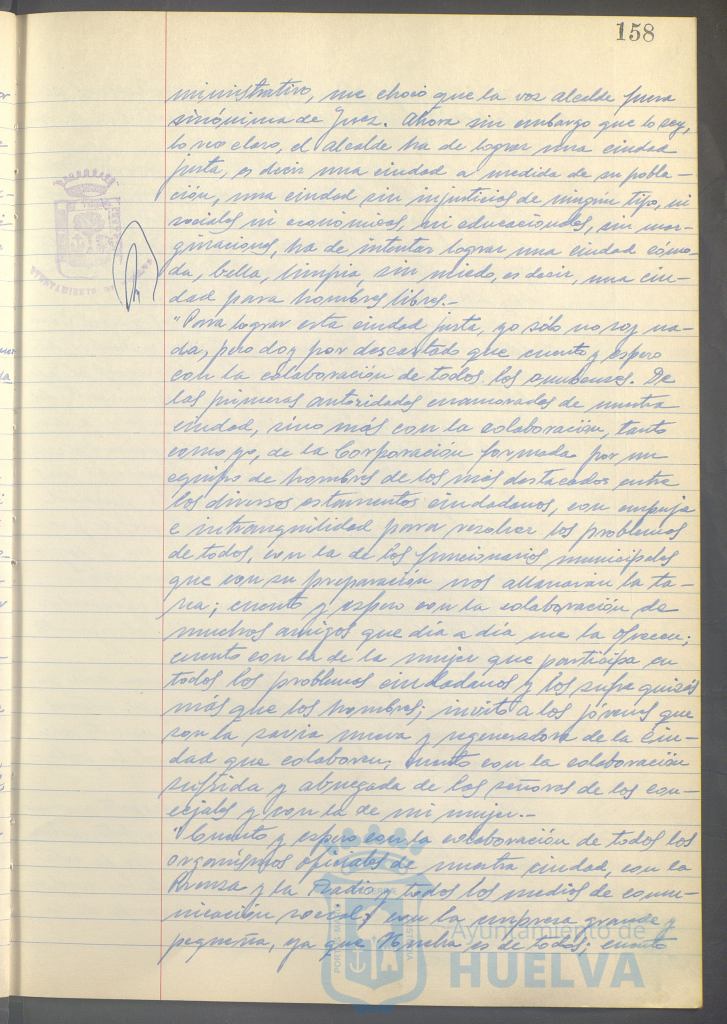 158
ministrativo, me chocó que la voz alcalde fuera
sinónima de Juez. Ahora sin embargo que lo soy,
lo veo claro, el alcalde ha de lograr una ciudad
justa, es decir una ciudad a medida de su pobla-
ción, una ciudad sin injusticias de ningún tipo, ni
sociales ni económicas, ni educacionales, sin mar-
ginaciones, ha de intentar lograr una ciudad cómo-
da, bella, limpia, sin miedo, es decir, una ciu-
dad para hombres libres.-
"Para lograr esta ciudad justa, yo sólo no soy na-
da, pero doy por descartado que cuento y espero
con la colaboración de todos los onubenses. De
las primeras autoridades enamorados de nuestra
ciudad, sino más con la colaboración, tanto
como yo, de la Corporación formada por un
equipo de hombres de los más destacados entre
los diversos estamentos ciudadanos, con empuje
e intranquilidad para resolver los problemas
de todos, con la de los funcionarios municipales
que con su preparación nos allanarán la ta-
rea; cuento y espero con la colaboración de
muchos amigos que día a día me la ofrecen;
cuento con la de la mujer que participa en
todos los problemas ciudadanos y los sufre quizás
más que los hombres; invito a los jóvenes que
son la savia nueva y regeneradora de la ciu-
dad que colaboren; cuento con la colaboración
sufrida y abnegada de las señoras de los con-
cejales y con la de mi mujer.-
"Cuento y espero con la colaboración de todos los
organismos oficiales de nuestra ciudad, con la
Prensa y la Radio y todos los medios de comu-
nicación social; con la empresa grande y
pequeña, ya que Huelva es de todos; cuento
AYUNTAMIENTO DE
Ayuntamiento de
HUELVA